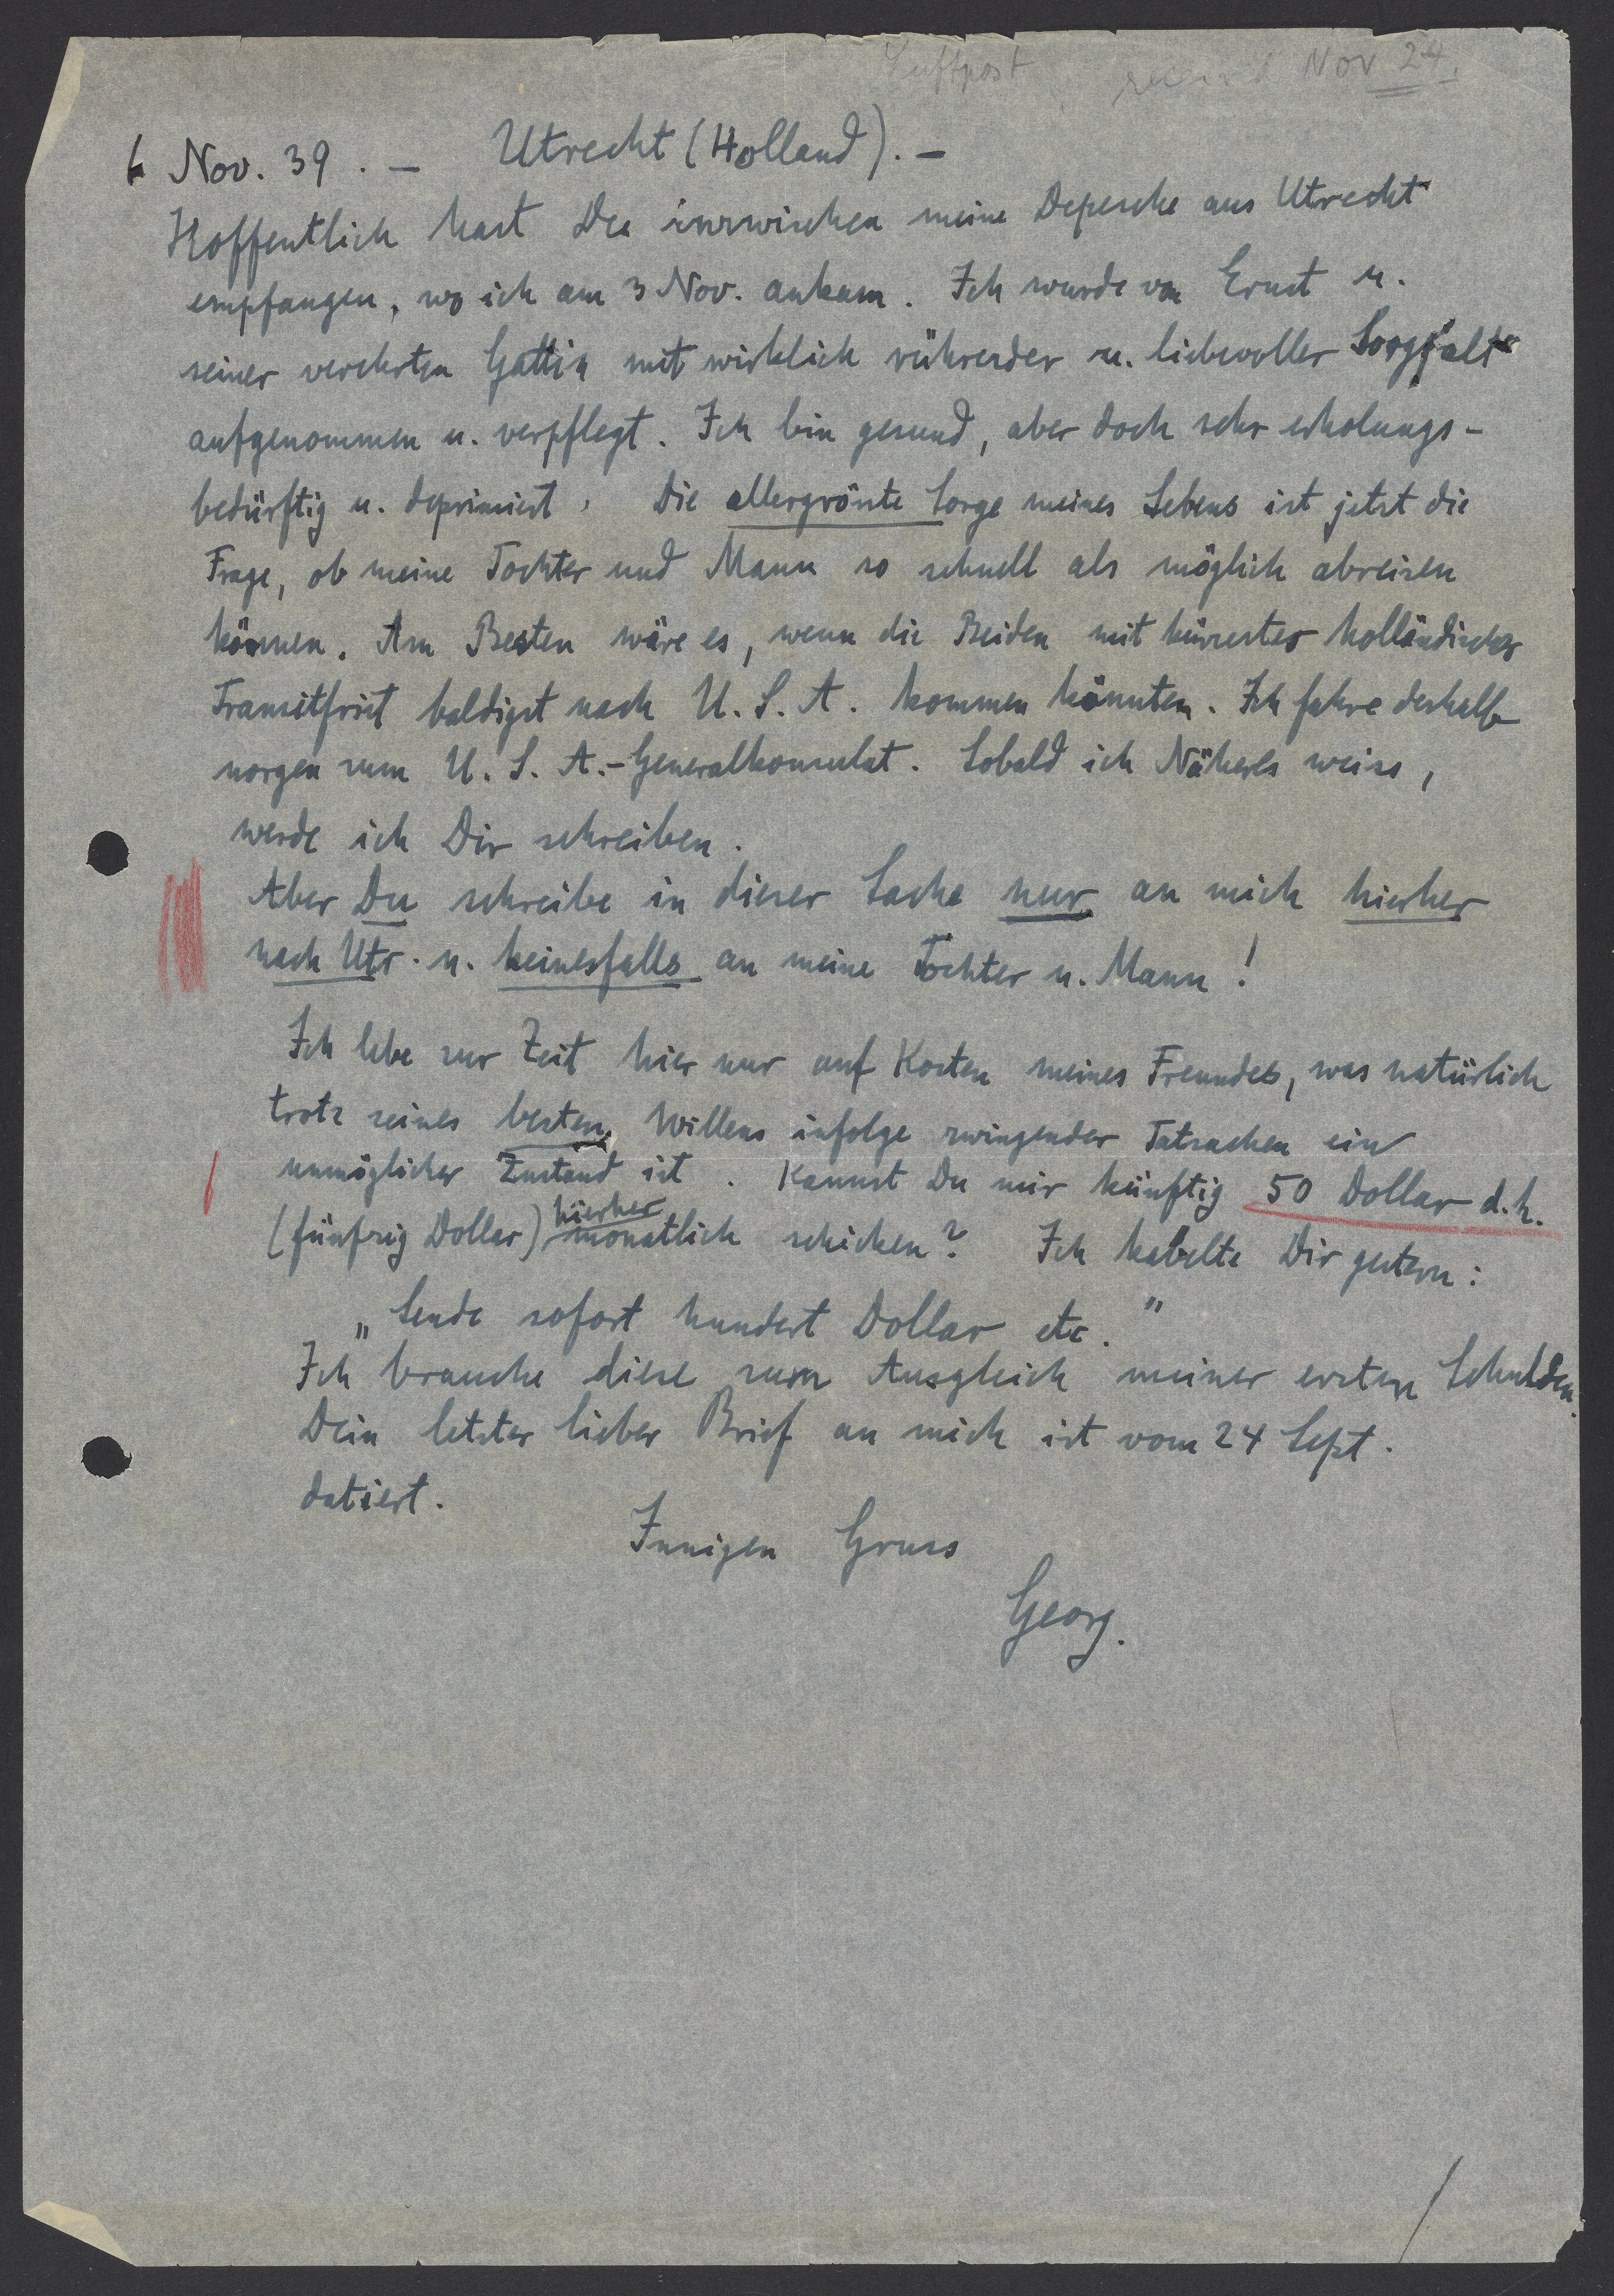 Luftpost Nov 24.
6 Nov. 39. – Utrecht (Holland). –
Hoffentlich hast Du inzwischen meine Depesche aus Utrecht
empfangen, wo ich am 3 Nov. ankam. Ich wurde von Ernst u.
seiner verehrten Gattin mit wirklich rührender u. liebevoller Sorgfalt
aufgenommen u. verpflegt. Ich bin gesund, aber doch sehr erholungs-
bedürftig u. deprimiert. Die allergrösste Sorge meines Lebens ist jetzt die
Frage, ob meine Tochter und Mann so schnell als möglich abreisen
können. Am Besten wäre es, wenn die Beiden mit kürzester holländischer
Transitfrist baldigst nach U.S.A. kommen könnten. Ich fahre deshalb
morgen zum U.S.A.-Generalkonsulat. Sobald ich Näheres weiss,
werde ich Dir schreiben.
Aber Du schreibe in dieser Sache nur an mich hierher
nach Utr. u. keinesfalls an meine Tochter u. Mann!
Ich lebe zur Zeit hier nur auf Kosten meines Freundes, was natürlich
trotz seines besten Willens infolge zwingender Tatsachen ein
unmöglicher Zustand ist. Kannst Du mir künftig 50 Dollar d.h.
(fünfzig Dollar) hierher monatlich schicken? Ich kabelte Dir gestern:
„Sende sofort hundert Dollar etc."
Ich brauche diese zum Ausgleich meiner ersten Schulden.
Dein letzter lieber Brief an mich ist vom 24 Sept.
datiert.
Innigen Gruss
Georg.